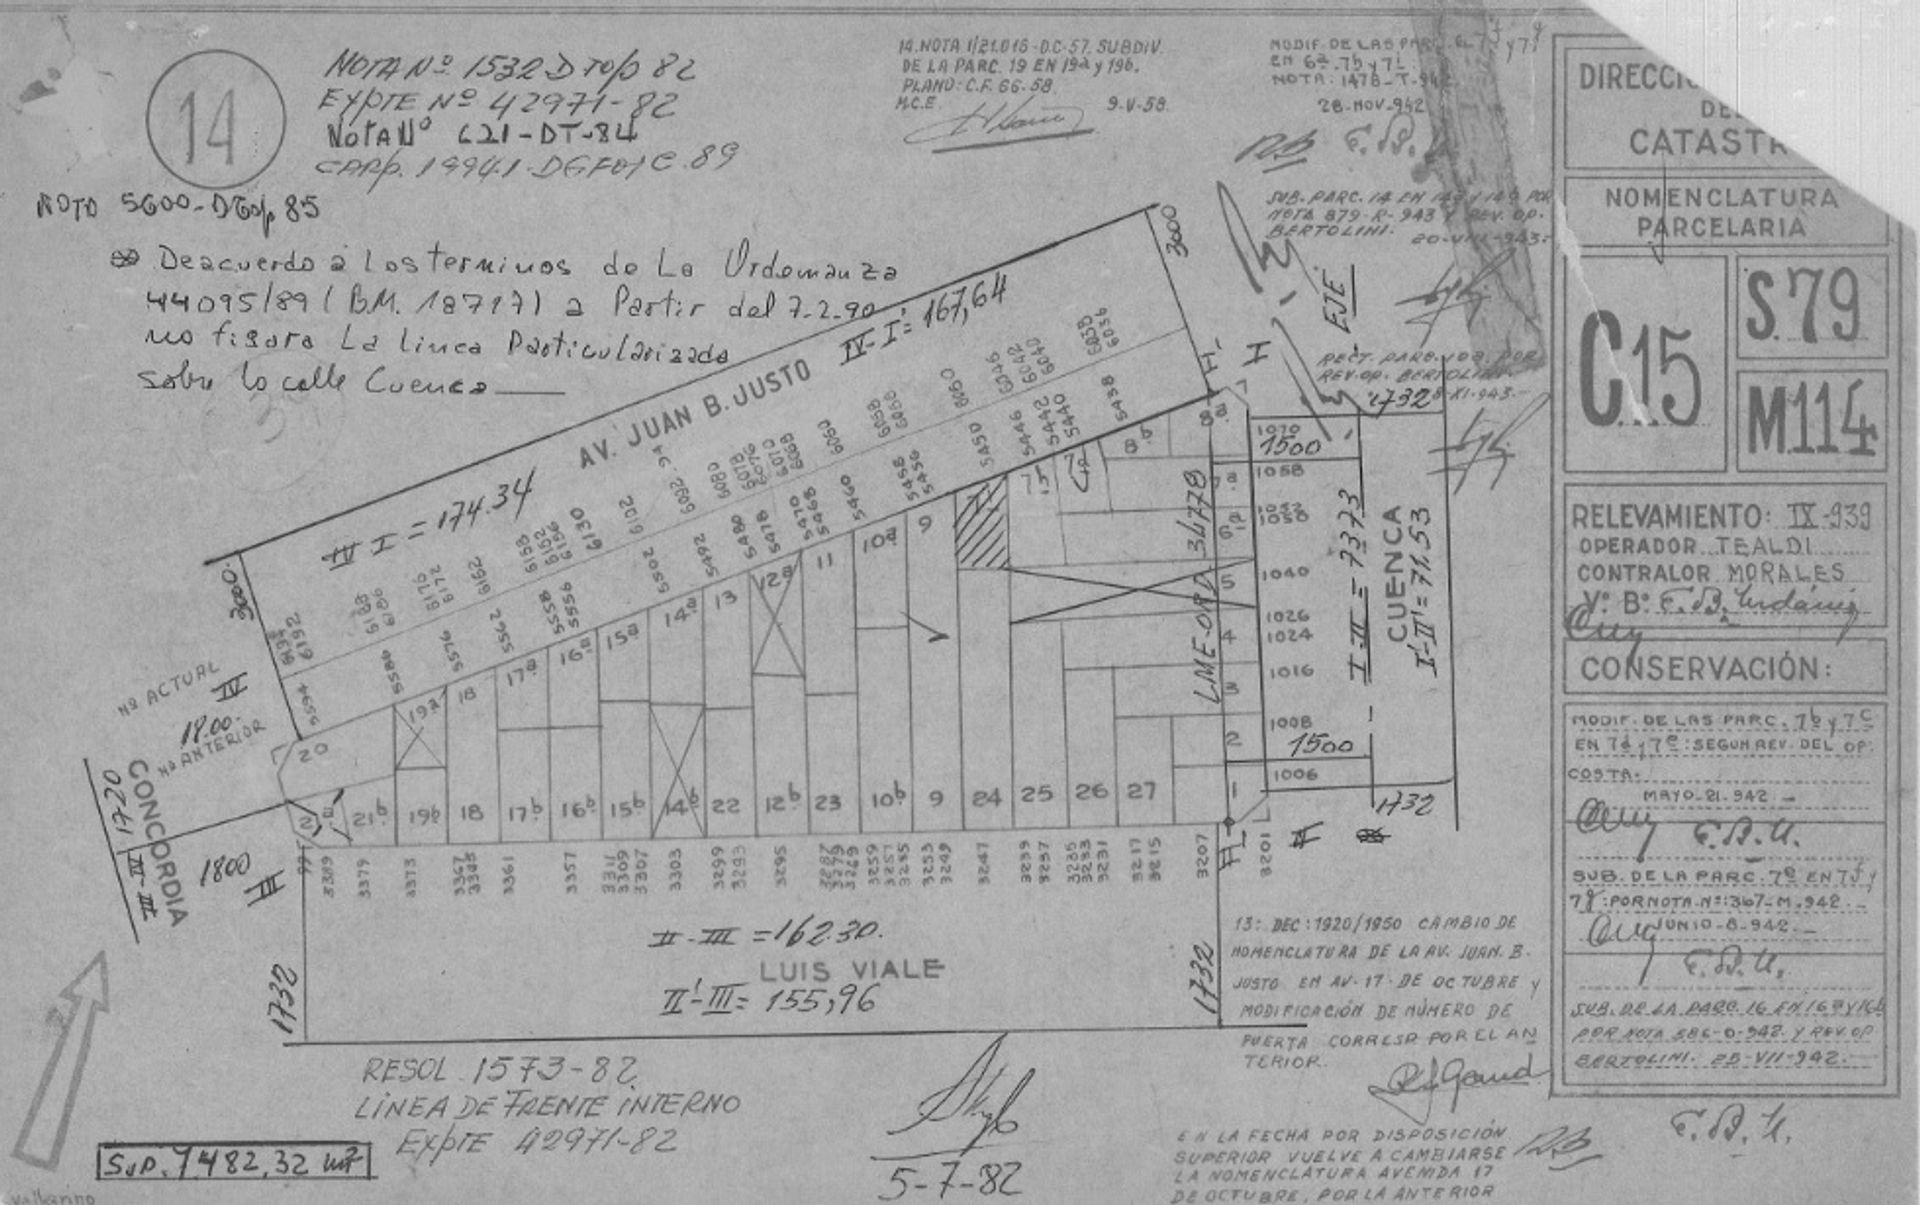 14
NOTA Nº 1532 D TOp 82
EXPTE Nº 42971-82
NOTA Nº 621-DT-84
CARP. 19941-DGFOYC.89
NOTO 5600-DTop 85
Deacuerdo a Los terminos de La Ordenanza
44095/89 (B.M. 18717) a Partir del 7-2-90
no figura La linea Particularizada
sobre la calle Cuenca
14. NOTA 1/21.016-D.C-57. SUBDIV.
DE LA PARC. 19 EN 19a y 19b.
PLANO: C.F. 66-58.
M.C.E. 9-V-58.
MODIF. DE LAS
EN 6a, 7b y 7c
NOTA: 1478-T-942
28-NOV-942
F.B.U.
SUB. PARC. 14 EN 14a y 14b POR
NOTA 879-R-943 Y REV. OP.
BERTOLINI. 20-VIII-943.
RECT. PARC. POR
REV. OP. BERTOLINI
XI-943.
EJE
H
3000
AV. JUAN B. JUSTO
IV-I'= 167,64
IV I = 174.34
3000
6192
6188
6186
6176
6172
6162
6158
6152
6156
6130
6102
6092.94
6080
6078
6076
6070
6068
6060
6058
6060
6046
6042
6040
6038
6036
5594
5580
5576
5562
5558
5556
5502
5492
5480
5478
5470
5468
5460
5458
5456
5450
5446
5442
5440
5438
20
19a
18
17a
16a
15a
14a
13
12a
11
10a
9
8
21b
19b
18
17b
16b
15b
14b
22
12b
23
10b
9
24
25
26
27
6
5
4
3
2
1
1070
1058
1040
1026
1024
1016
1008
1006
1500
1500
1732
1732
LME-ORD 34778
I-II = 7373
CUENCA
I'-II'= 71.53
Nº ACTUAL
IV
18.00
Nº ANTERIOR
CONCORDIA
III-III
1800
III
995
3389
3379
3373
3367
3365
3361
3357
3311
3309
3307
3303
3299
3293
3295
3287
3279
3269
3259
3257
3255
3253
3249
3247
3239
3237
3235
3233
3231
3217
3215
3207
3201
II
II-III = 162.30.
LUIS VIALE
II'-III= 155,96
1732
1732
RESOL 1573-82
LINEA DE FRENTE INTERNO
EXPTE 42971-82
5-7-82
SUP. 7482,32 m²
13: DEC: 1920/1950 CAMBIO DE
NOMENCLATURA DE LA AV. JUAN. B.
JUSTO EN AV. 17 DE OCTUBRE Y
MODIFICACIÓN DE NÚMERO DE
PUERTA CORRESP. POR EL AN
TERIOR.
EN LA FECHA POR DISPOSICIÓN
SUPERIOR VUELVE A CAMBIARSE
LA NOMENCLATURA AVENIDA 17
DE OCTUBRE, POR LA ANTERIOR
DE
CATASTR
NOMENCLATURA
PARCELARIA
C.15
S.79
M.114
RELEVAMIENTO: IX-939
OPERADOR TEALDI
CONTRALOR MORALES
Vº Bº F.B. Urdániz
CONSERVACIÓN:
MODIF. DE LAS PARC. 7b y 7c
EN 7d y 7e: SEGUN REV. DEL OP.
COSTA.
MAYO-21-942
F.B.U.
SUB. DE LA PARC. 7e EN 7f y
7g: POR NOTA Nº: 367-M-942.
JUNIO-8-942.
F.B.U.
SUB. DE LA PARC. 16 EN 16a Y 16b
POR NOTA 586-O-942. Y REV. OP
BERTOLINI. 25-VII-942.
F.B.U.